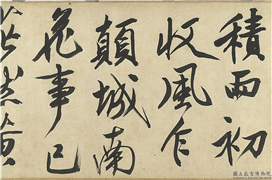 積雨初
收風乍
顛城南
花事已
茫然
國立故宮博物院